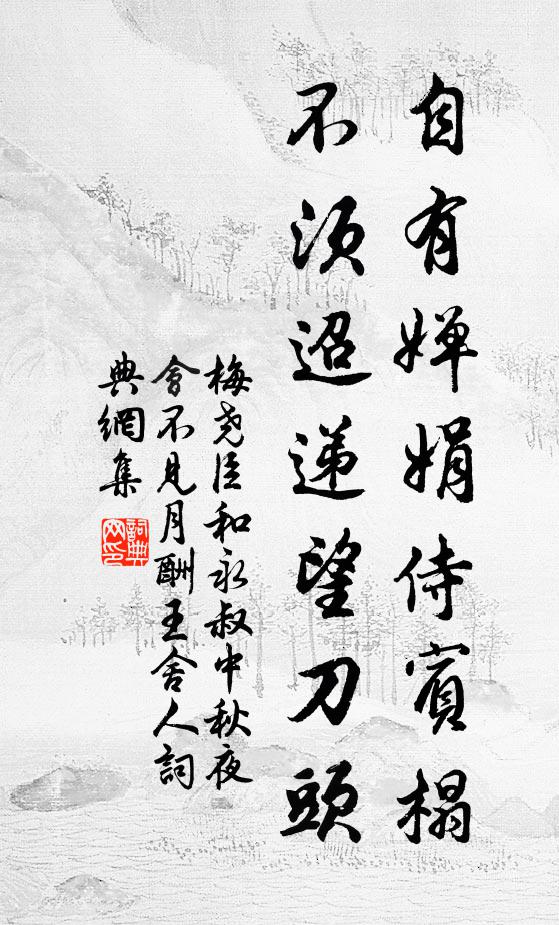 自有婵娟侍賓榻
不須迢递望刀頭
梅尧臣和永叔中秋夜
會不見月酬王舍人詞
典網集
詞典
网印